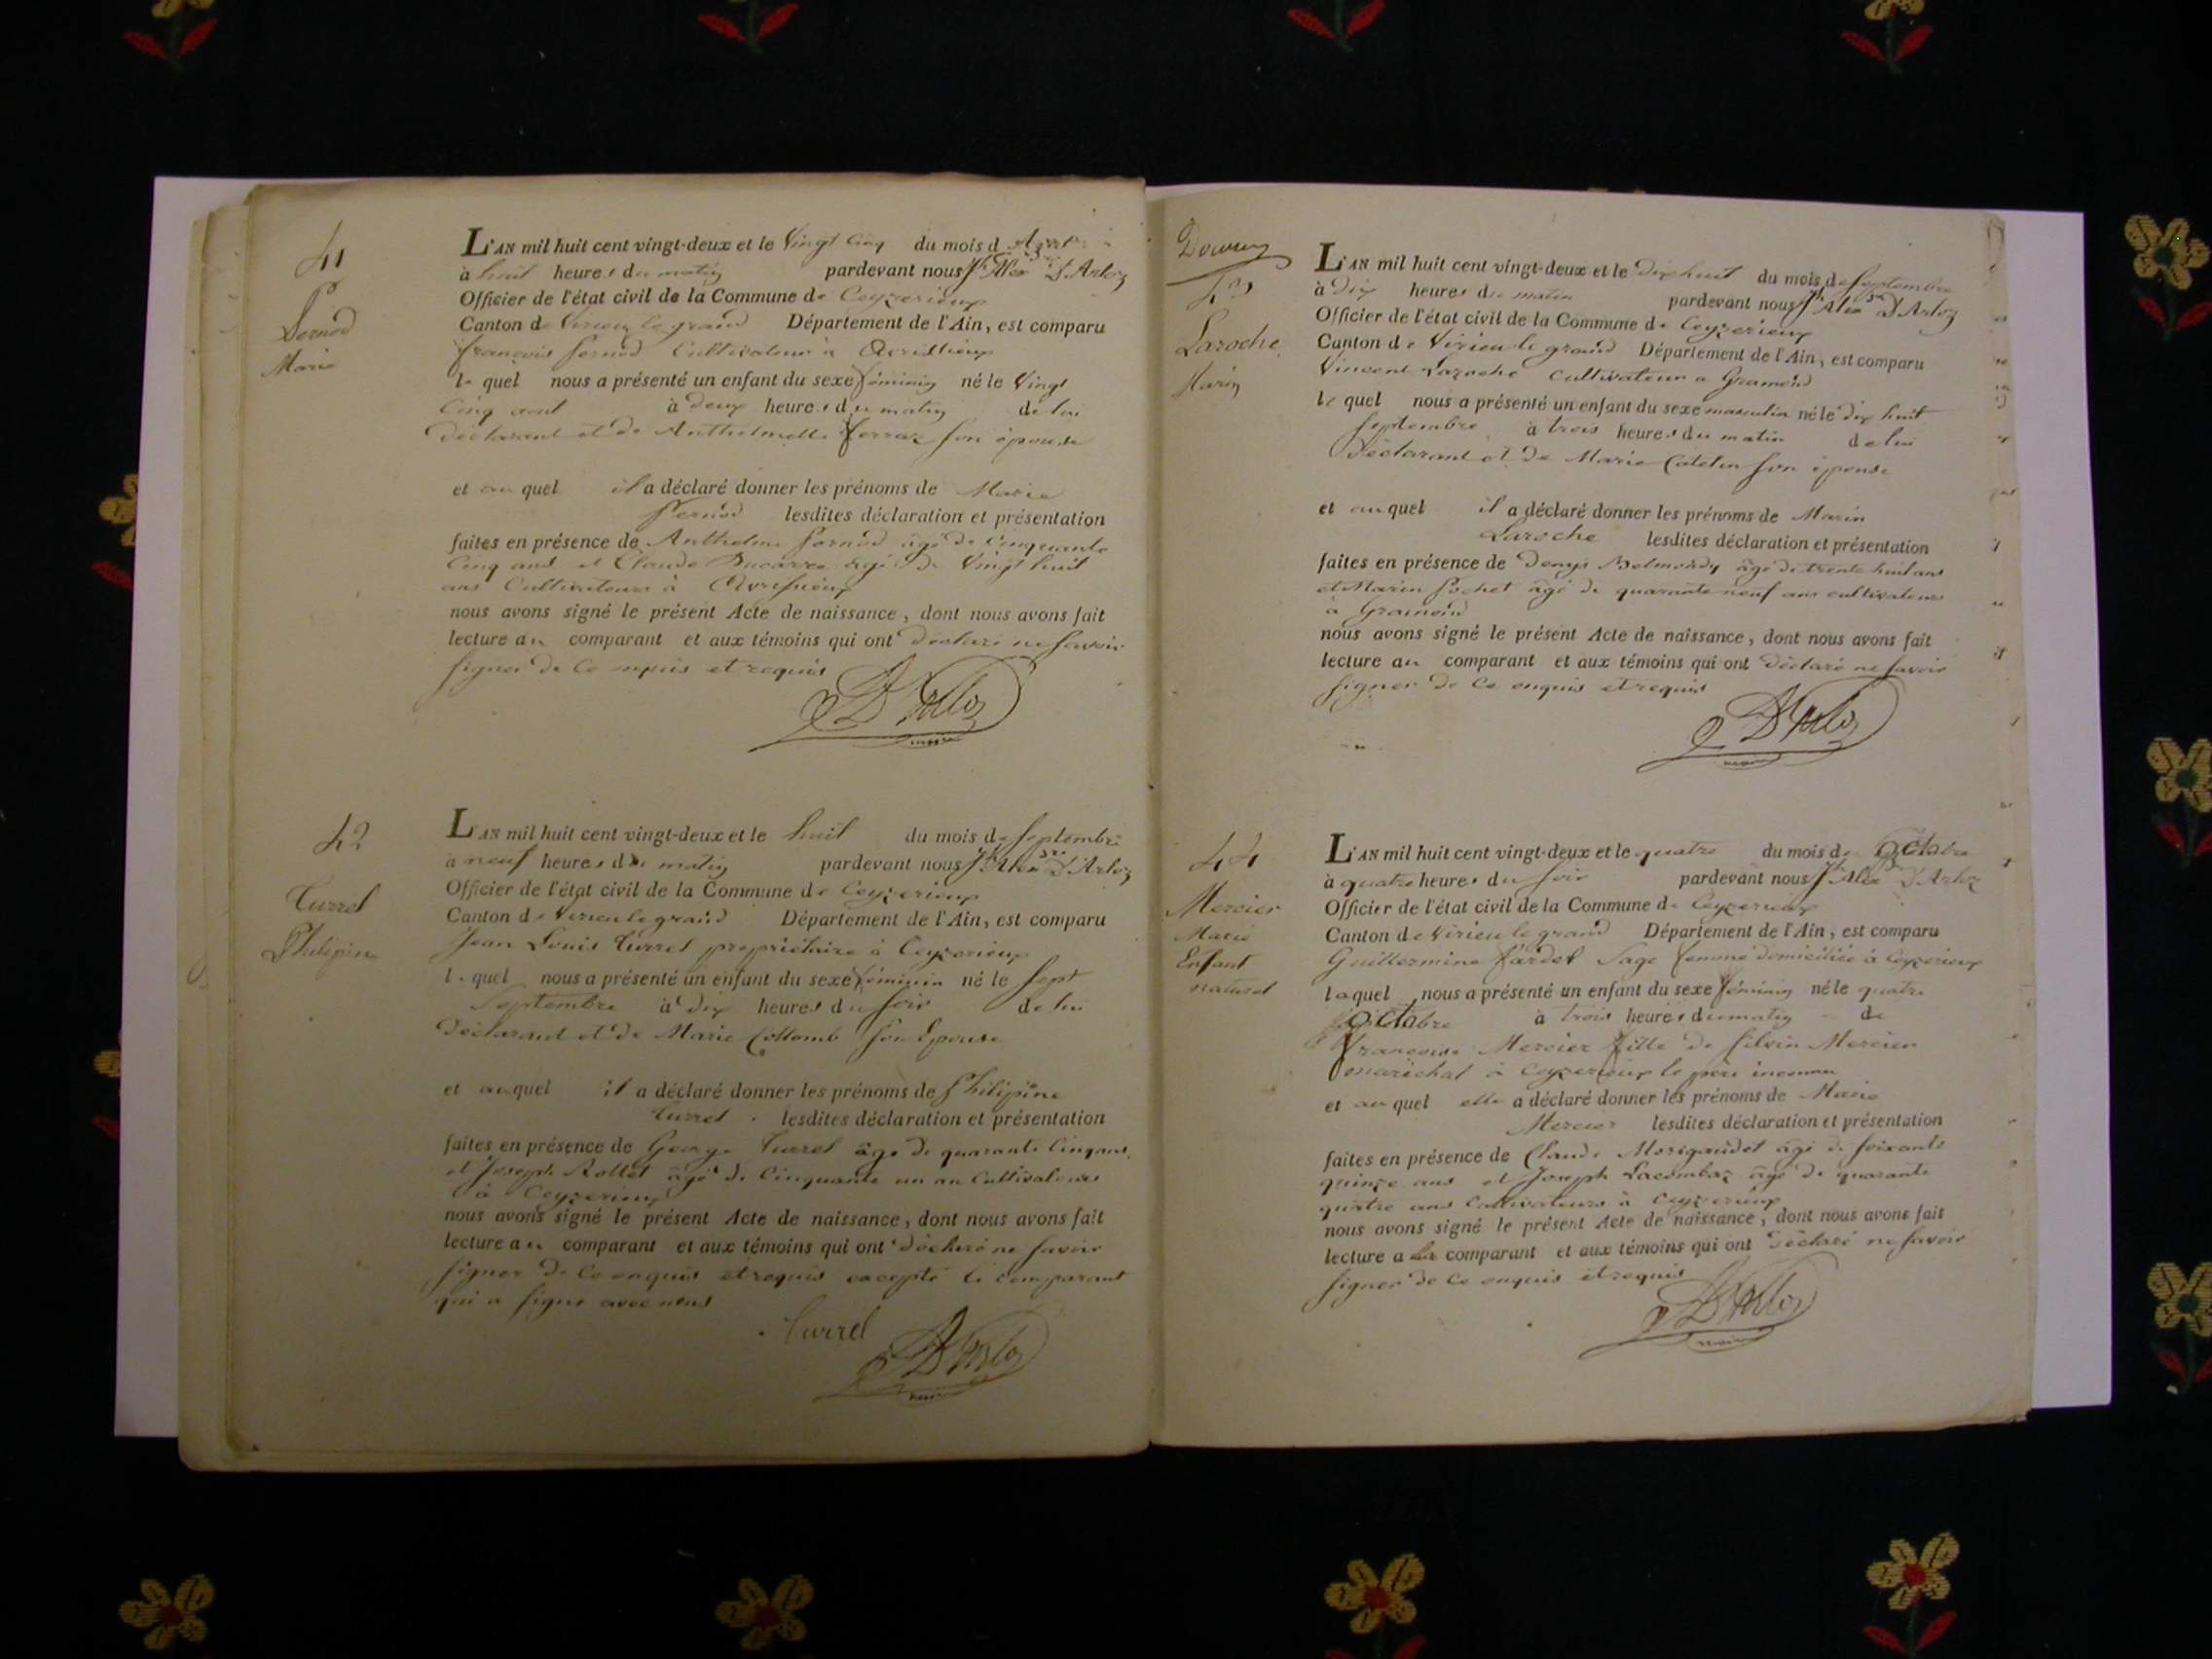 41
Pernod
Marie
L'AN mil huit cent vingt-deux et le Vingt Cinq du mois d'Aout
à huit heures du matin pardevant nous Jh Alexdre D'Arloz
Officier de l'état civil de la Commune de Ceyzerieux
Canton de Virieu le grand Département de l'Ain, est comparu
françois pernod Cultivateur à
le quel nous a présenté un enfant du sexe féminin né le Vingt
Cinq aout à deux heures du matin de lui
déclarant et de Anthelmette ferraz son épouse
et au quel il a déclaré donner les prénoms de Marie
Pernod lesdites déclaration et présentation
faites en présence de Anthelme pernod âgé de Cinquante
Cinq ans et Claude Ducarre âgé de Vingt huit
ans Cultivateurs à
nous avons signé le présent Acte de naissance, dont nous avons fait
lecture au comparant et aux témoins qui ont déclaré ne savoir
signer de Ce enquis et requis
D'Arloz
42
Turrel
Philipine
L'AN mil huit cent vingt-deux et le huit du mois de septembre
à neuf heures du matin pardevant nous Jh Alexdre D'Arloz
Officier de l'état civil de la Commune de Ceyzerieux
Canton de Virieu le grand Département de l'Ain, est comparu
Jean Louis Turrel propriétaire à Ceyzerieux
le quel nous a présenté un enfant du sexe féminin né le sept
Septembre à dix heures du soir de lui
déclarant et de Marie Collomb son Epouse
et au quel il a déclaré donner les prénoms de Philipine
Turrel . lesdites déclaration et présentation
faites en présence de George Turrel âgé de quarante Cinq ans
et Joseph Rollet âgé de Cinquante un an Cultivateurs
à Ceyzerieux
nous avons signé le présent Acte de naissance, dont nous avons fait
lecture au comparant et aux témoins qui ont déclaré ne savoir
signer de Ce enquis et requis excepté le comparant
qui a signé avec nous
Turrel
D'Arloz
43
Laroche
Marin
L'AN mil huit cent vingt-deux et le dix huit du mois de septembre
à dix heures du matin pardevant nous Jh Alexdre D'Arloz
Officier de l'état civil de la Commune de Ceyzerieux
Canton de Virieu le grand Département de l'Ain, est comparu
Vincent Laroche Cultivateur a Gramond
le quel nous a présenté un enfant du sexe masculin né le dix huit
septembre à trois heures du matin de lui
déclarant et de Marie Catelin son épouse
et au quel il a déclaré donner les prénoms de Marin
Laroche lesdites déclaration et présentation
faites en présence de Denys Belmondy âgé de trente huit ans
et Marin pochet âgé de quarante neuf ans cultivateurs
à Gramond
nous avons signé le présent Acte de naissance, dont nous avons fait
lecture au comparant et aux témoins qui ont déclaré ne savoir
signer de Ce enquis et requis
D'Arloz
44
Mercier
Marie
Enfant
naturel
L'AN mil huit cent vingt-deux et le quatre du mois de Octobre
à quatre heures du soir pardevant nous Jh Alexdre D'Arloz
Officier de l'état civil de la Commune de Ceyzerieux
Canton de Virieu le grand Département de l'Ain, est comparu
Guillermine fardel Sage femme domiciliée à Ceyzerieux
laquel nous a présenté un enfant du sexe féminin né le quatre
Octobre à trois heures du matin de
françoise Mercier fille de silvin Mercier
maréchal à Ceyzerieux le père inconnu
et au quel elle a déclaré donner les prénoms de Marie
Mercier lesdites déclaration et présentation
faites en présence de Claude Morigaudet âgé de soixante
quinze ans et Joseph Lacombaz âgé de quarante
quatre ans Cultivateurs à Ceyzerieux
nous avons signé le présent Acte de naissance, dont nous avons fait
lecture a la comparant et aux témoins qui ont déclaré ne savoir
signer de Ce enquis et requis
D'Arloz